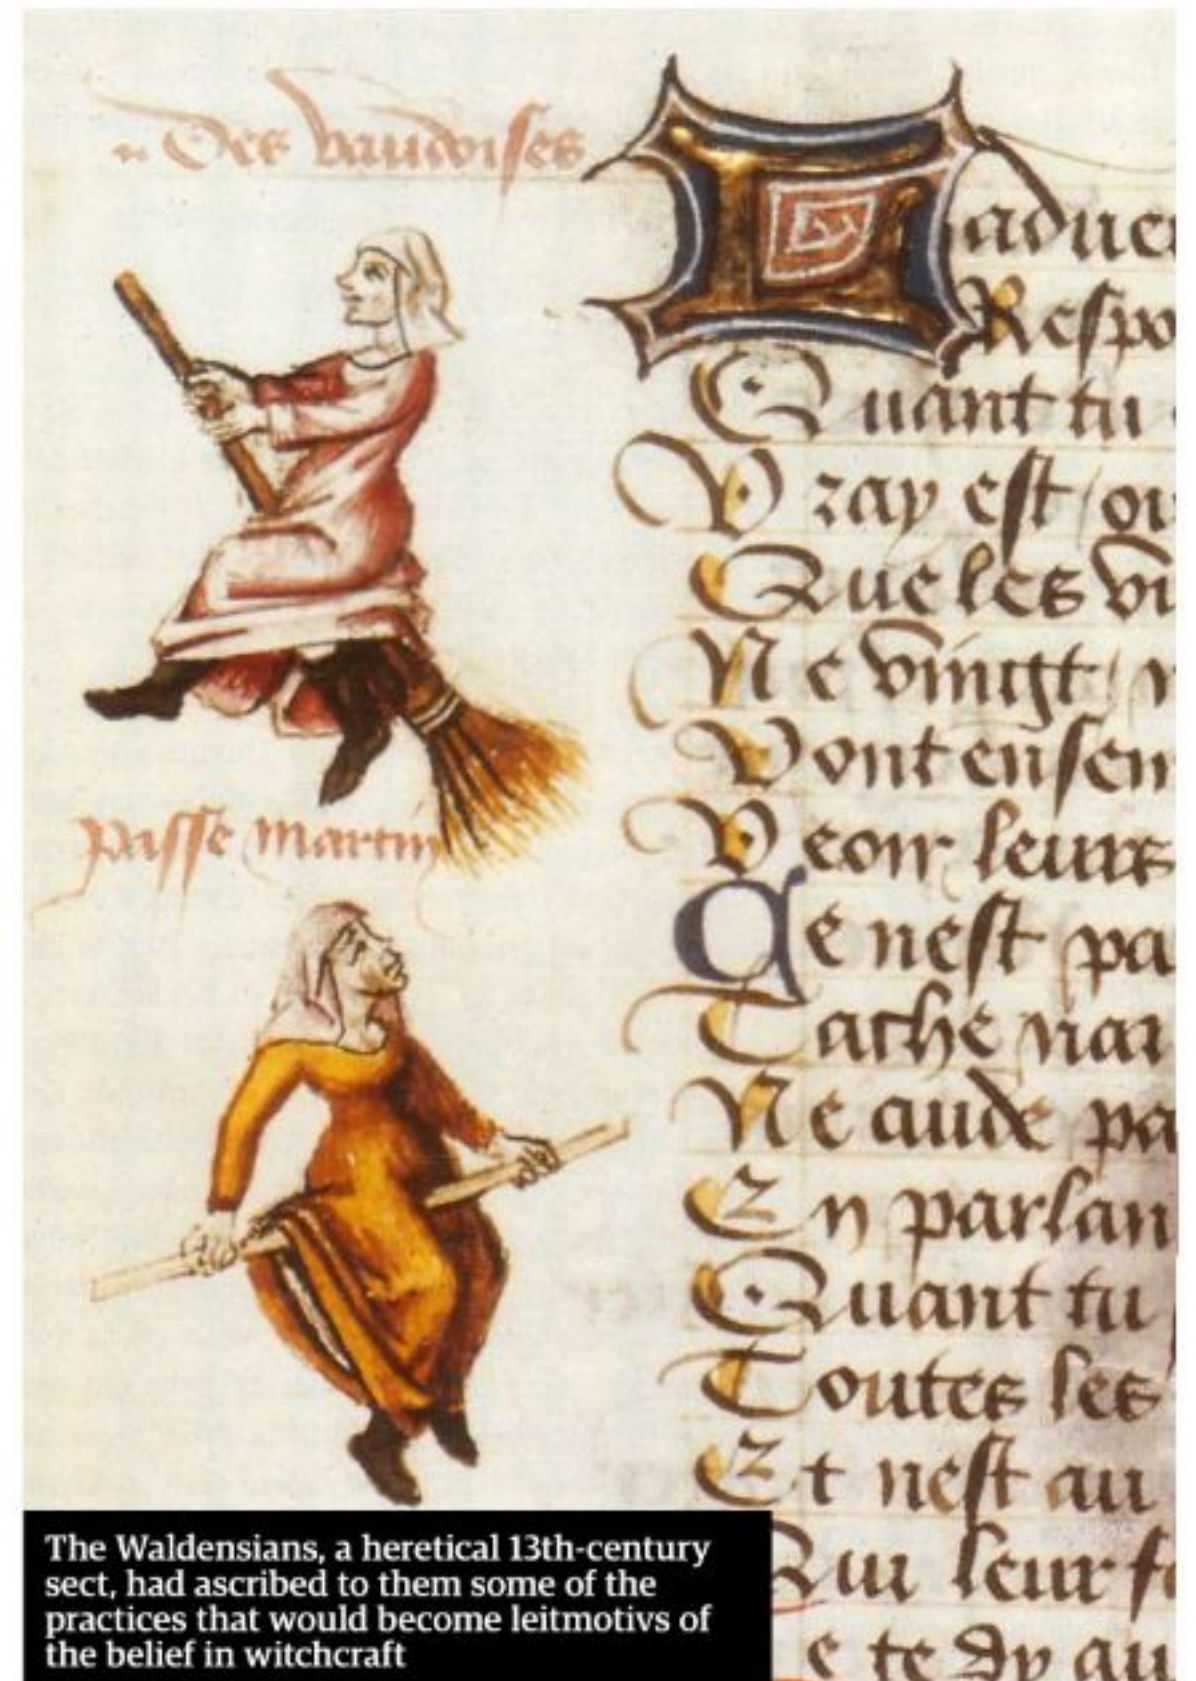 Des vaudoises
passe martin
aduer
Respo
Quant tu
Vray est / ou
Que les vi
Ne vingt /
Vont ensem
Veoir leurs
Ce nest pa
Tache nar
Ne cuide pa
En parlan
Quant tu
Toutes les
Et nest au
Qui leur fe
e te dy au
The Waldensians, a heretical 13th-century
sect, had ascribed to them some of the
practices that would become leitmotivs of
the belief in witchcraft